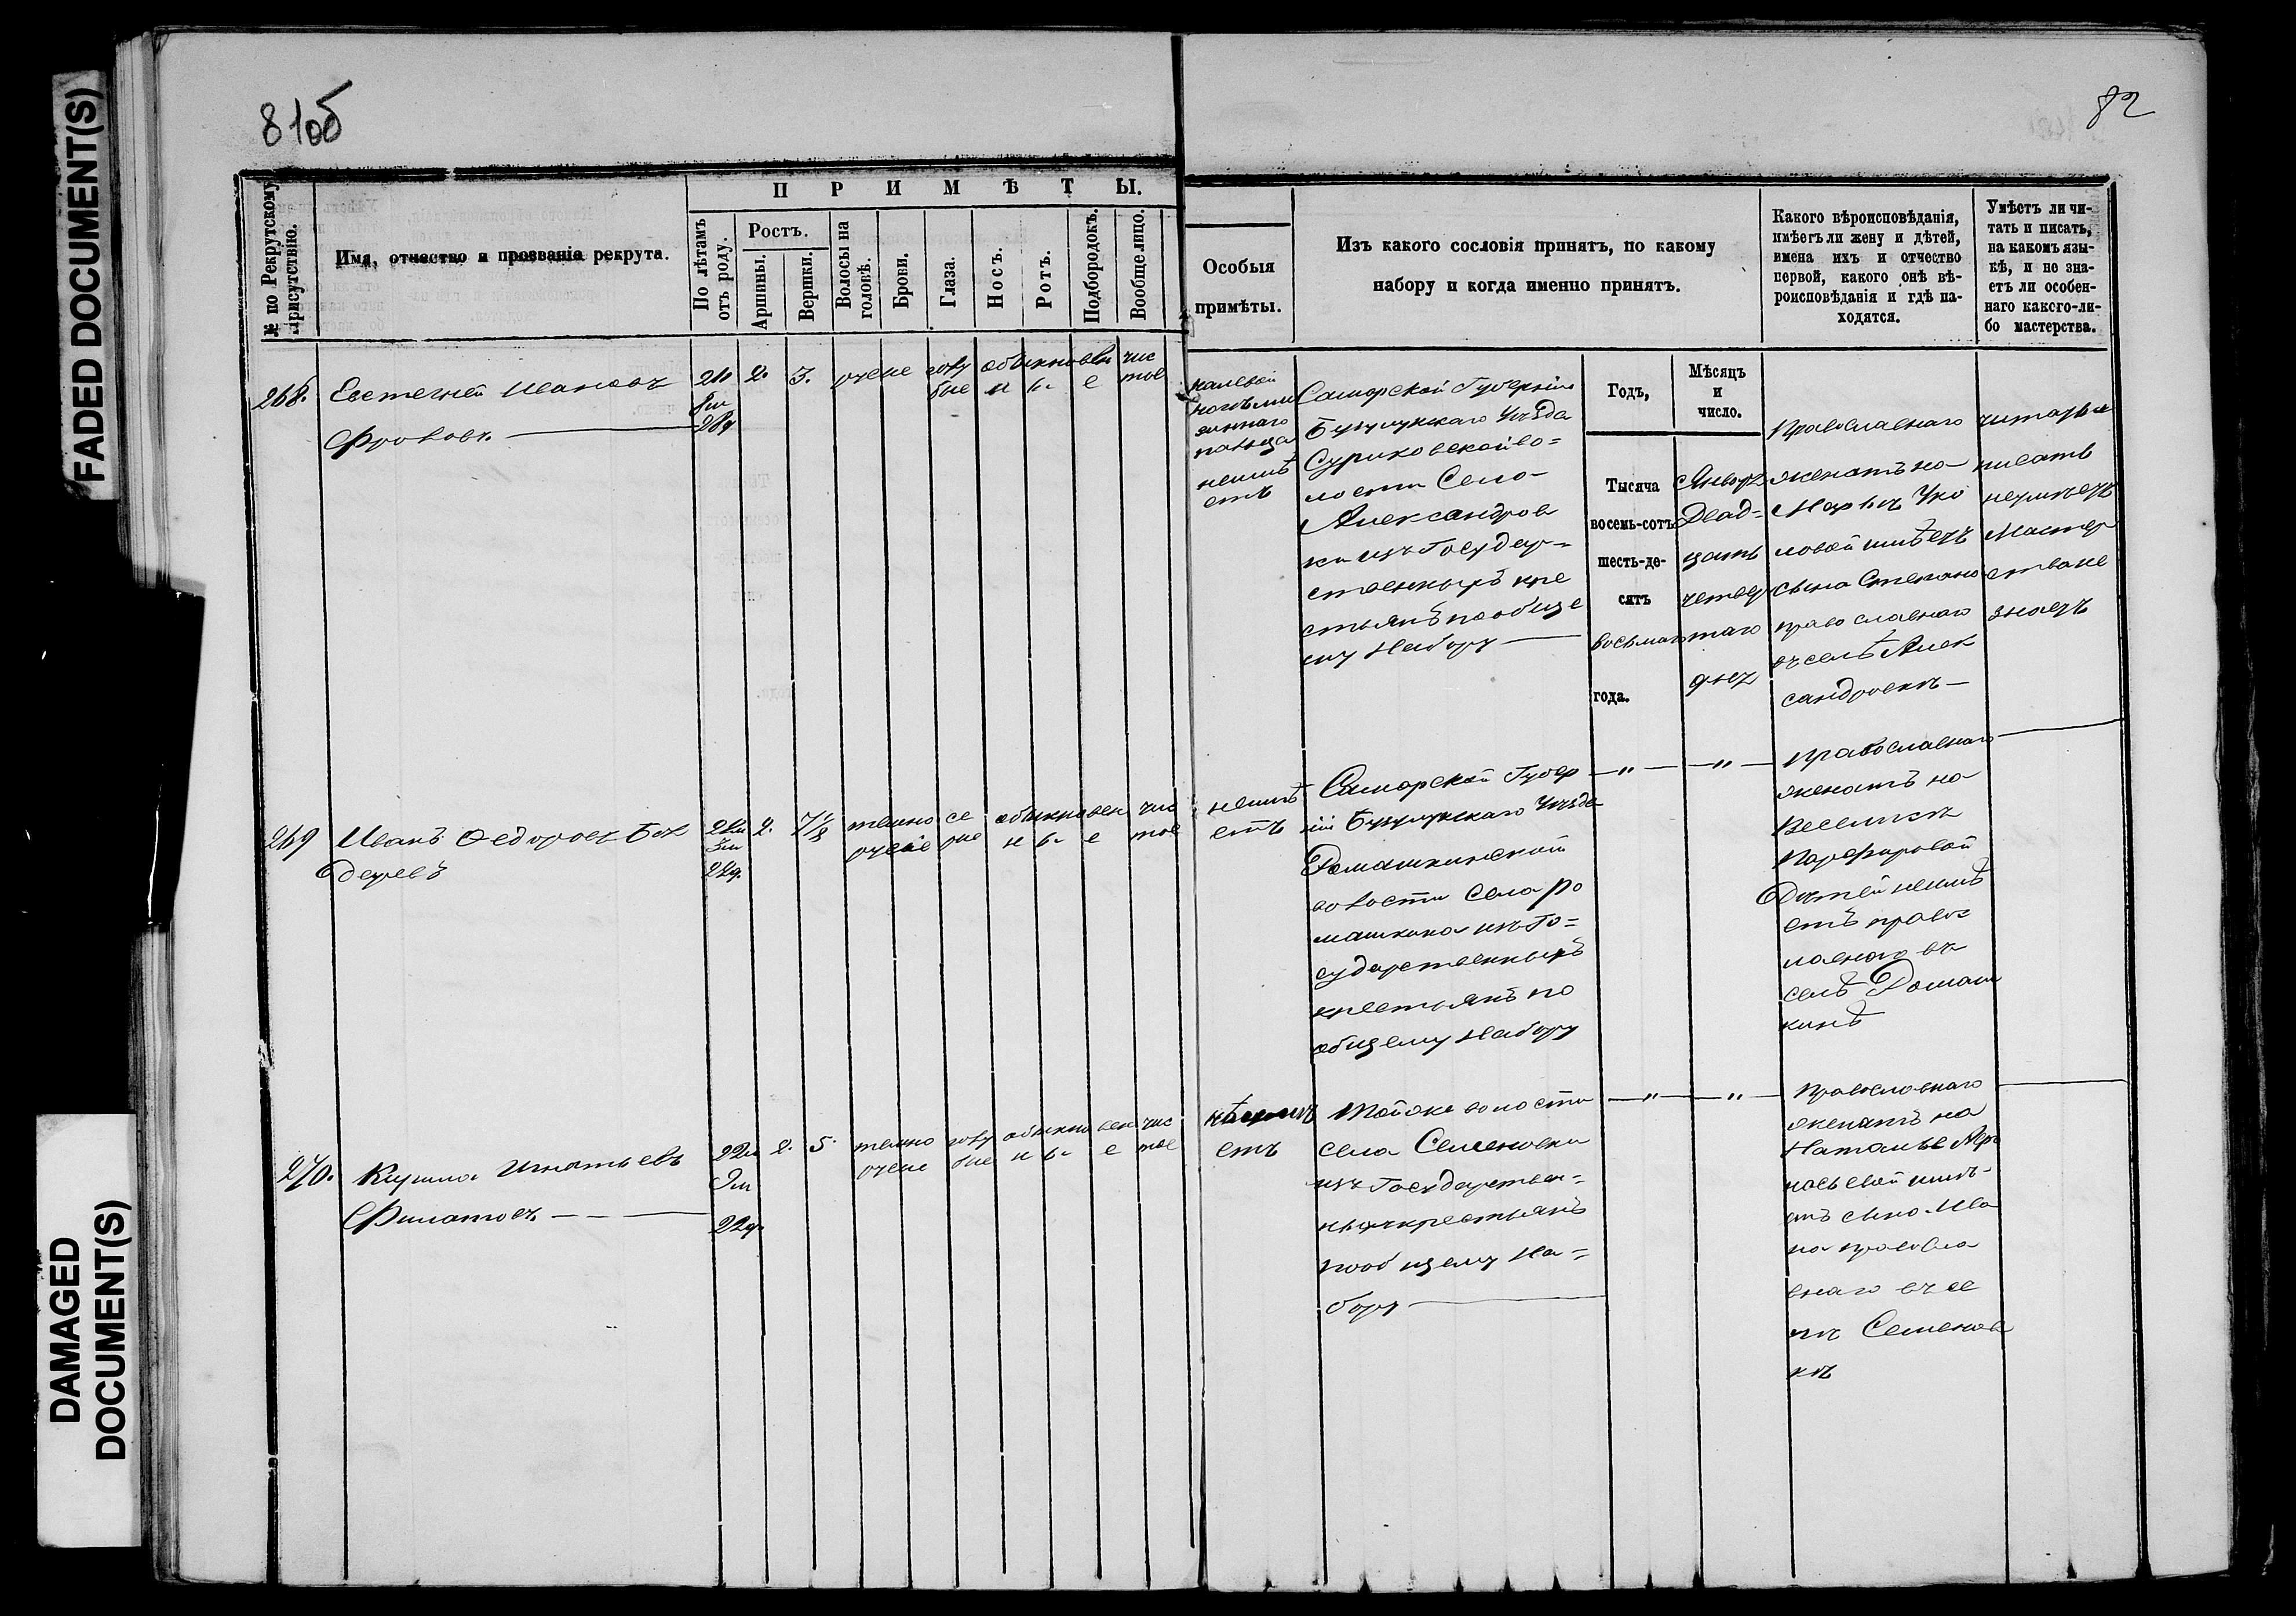 FADED DOCUMENT(S)
DAMAGED
DOCUMENT(S)
81об
82
№ по Рекрутскому
присутствію.
Имя, отчество и прозванія рекрута.
ПРИМѢТЫ.
По лѣтамъ
отъ роду.
Ростъ.
Аршины.
Вершки.
Волосы на
головѣ.
Брови.
Глаза.
Носъ.
Ротъ.
Подбородокъ.
Вообще лицо.
Особыя
примѣты.
Изъ какого сословія принятъ, по какому
набору и когда именно принятъ.
Какого вѣроисповѣданія,
имѣетъ ли жену и дѣтей,
имена ихъ и отчество
первой, какого онѣ вѣ-
роисповѣданія и гдѣ на-
ходятся.
Умѣетъ ли чи-
тать и писать,
на какомъ язы-
кѣ, и не зна-
етъ ли особен-
наго какого-ли-
бо мастерства.
268.
Евстегней Ивановъ
Фроловъ
2. 3.
русые
голу
бые
обыкновен
н ы е
чис
тое
на левой
пальца
неимѣ
етъ
Самарской Губерніи
Бузулукскаго Уѣзда
Суриковской во=
лости Села
Александров
ки изъ Государ=
ственныхъ кре
стьянъ по обще
му набору
Годъ,
Мѣсяцъ
и
число.
Тысяча
восемь-сотъ
шесть-де-
сятъ
восьмаго
года.
Январь
Двад=
цать
четвер
таго
дня
Православнаго
женатъ на
Марьѣ
ловой имѣетъ
сына Степана
православнаго
въ селѣ Алек
сандровкѣ
читать и
писать
неумѣетъ
мастер
ства не
знаетъ
269
Иванъ Федоровъ Бон
даревъ
2. 7 1/8
темно
русые
се
рые
обыкновен
н ы е
чис
тое
неимѣ
етъ
Самарской Губер
ніи Бузулукскаго Уѣзда
Ромашкинской
волости села Ро
машкина изъ Го=
сударственныхъ
крестьянъ по
общему набору
Православнаго
женатъ на
Парфировой
Дѣтей неимѣ
етъ правос
лавнаго въ
селѣ Ромаш
кинѣ
270.
Кирила Игнатьевъ
Филатовъ
2. 5.
темно
русые
голу
бые
обыкновен
н ы е
чис
тое
етъ
Той же волости
села Семеновки
изъ Государствен=
ныхъ крестьянъ
по общему на=
бору
Православнаго
женатъ на
Натальѣ
имѣ-
етъ сына Ива
на правосла
внаго въ се
лѣ Семенов
кѣ